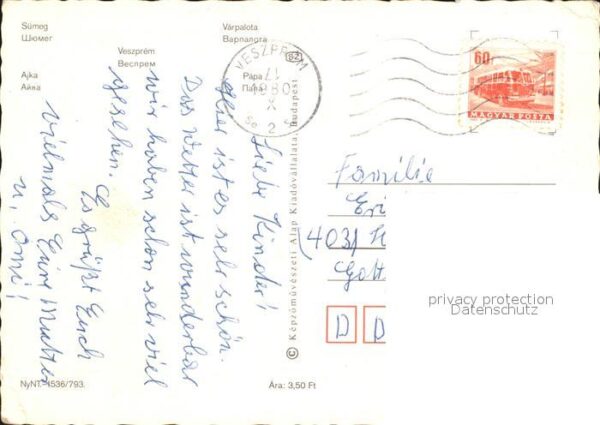 Sümeg
Шюмег
Várpalota
Варпалота
Veszprém
Веспрем
Ajka
Айка
Pápa
Папа
VESZPRÉM
60f
MAGYAR POSTA
Liebe Kinder!
Hier ist es sehr schön.
Das Wetter ist wunderbar
wir haben schon sehr viel
gesehen. Es grüßt Euch
vielmals Eure Mutter
u. Omi!
© Képzőművészeti Alap Kiadóvállalata, Budapest
Familie
Eri
4031
Gott
D D
privacy protection
Datenschutz
NyNT. 1536/793.
Ára: 3,50 Ft